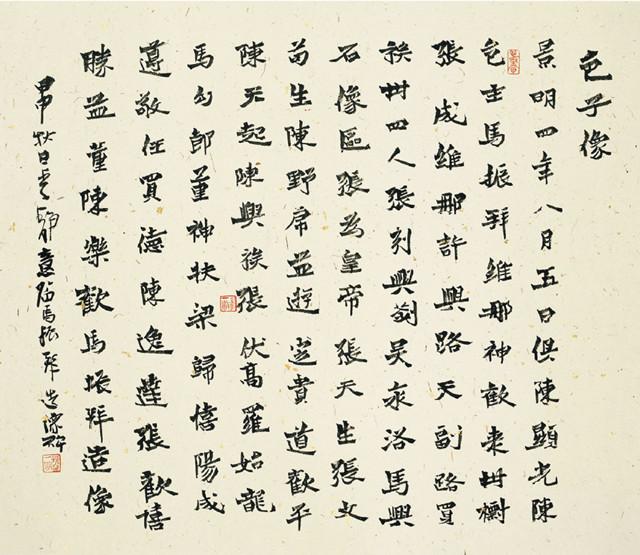 邑子像
景明四年八月五日俱陳顯光陳
邑主馬振拜維那神歡来卅樹
張成維那許興路天副路買
族卅四人張引興劉吴永洛馬興
石像區張為皇帝張天生張文
苟生陳野席益遊芝貴道歡平
陳天起陳興族張伏高羅始龍
馬幻郎董神扶梁歸憘陽成
遵敬任買德陳逸達張歡憘
勝益董陳樂歡馬振拜造像
甲申秋日静意臨馬振拜造像碑